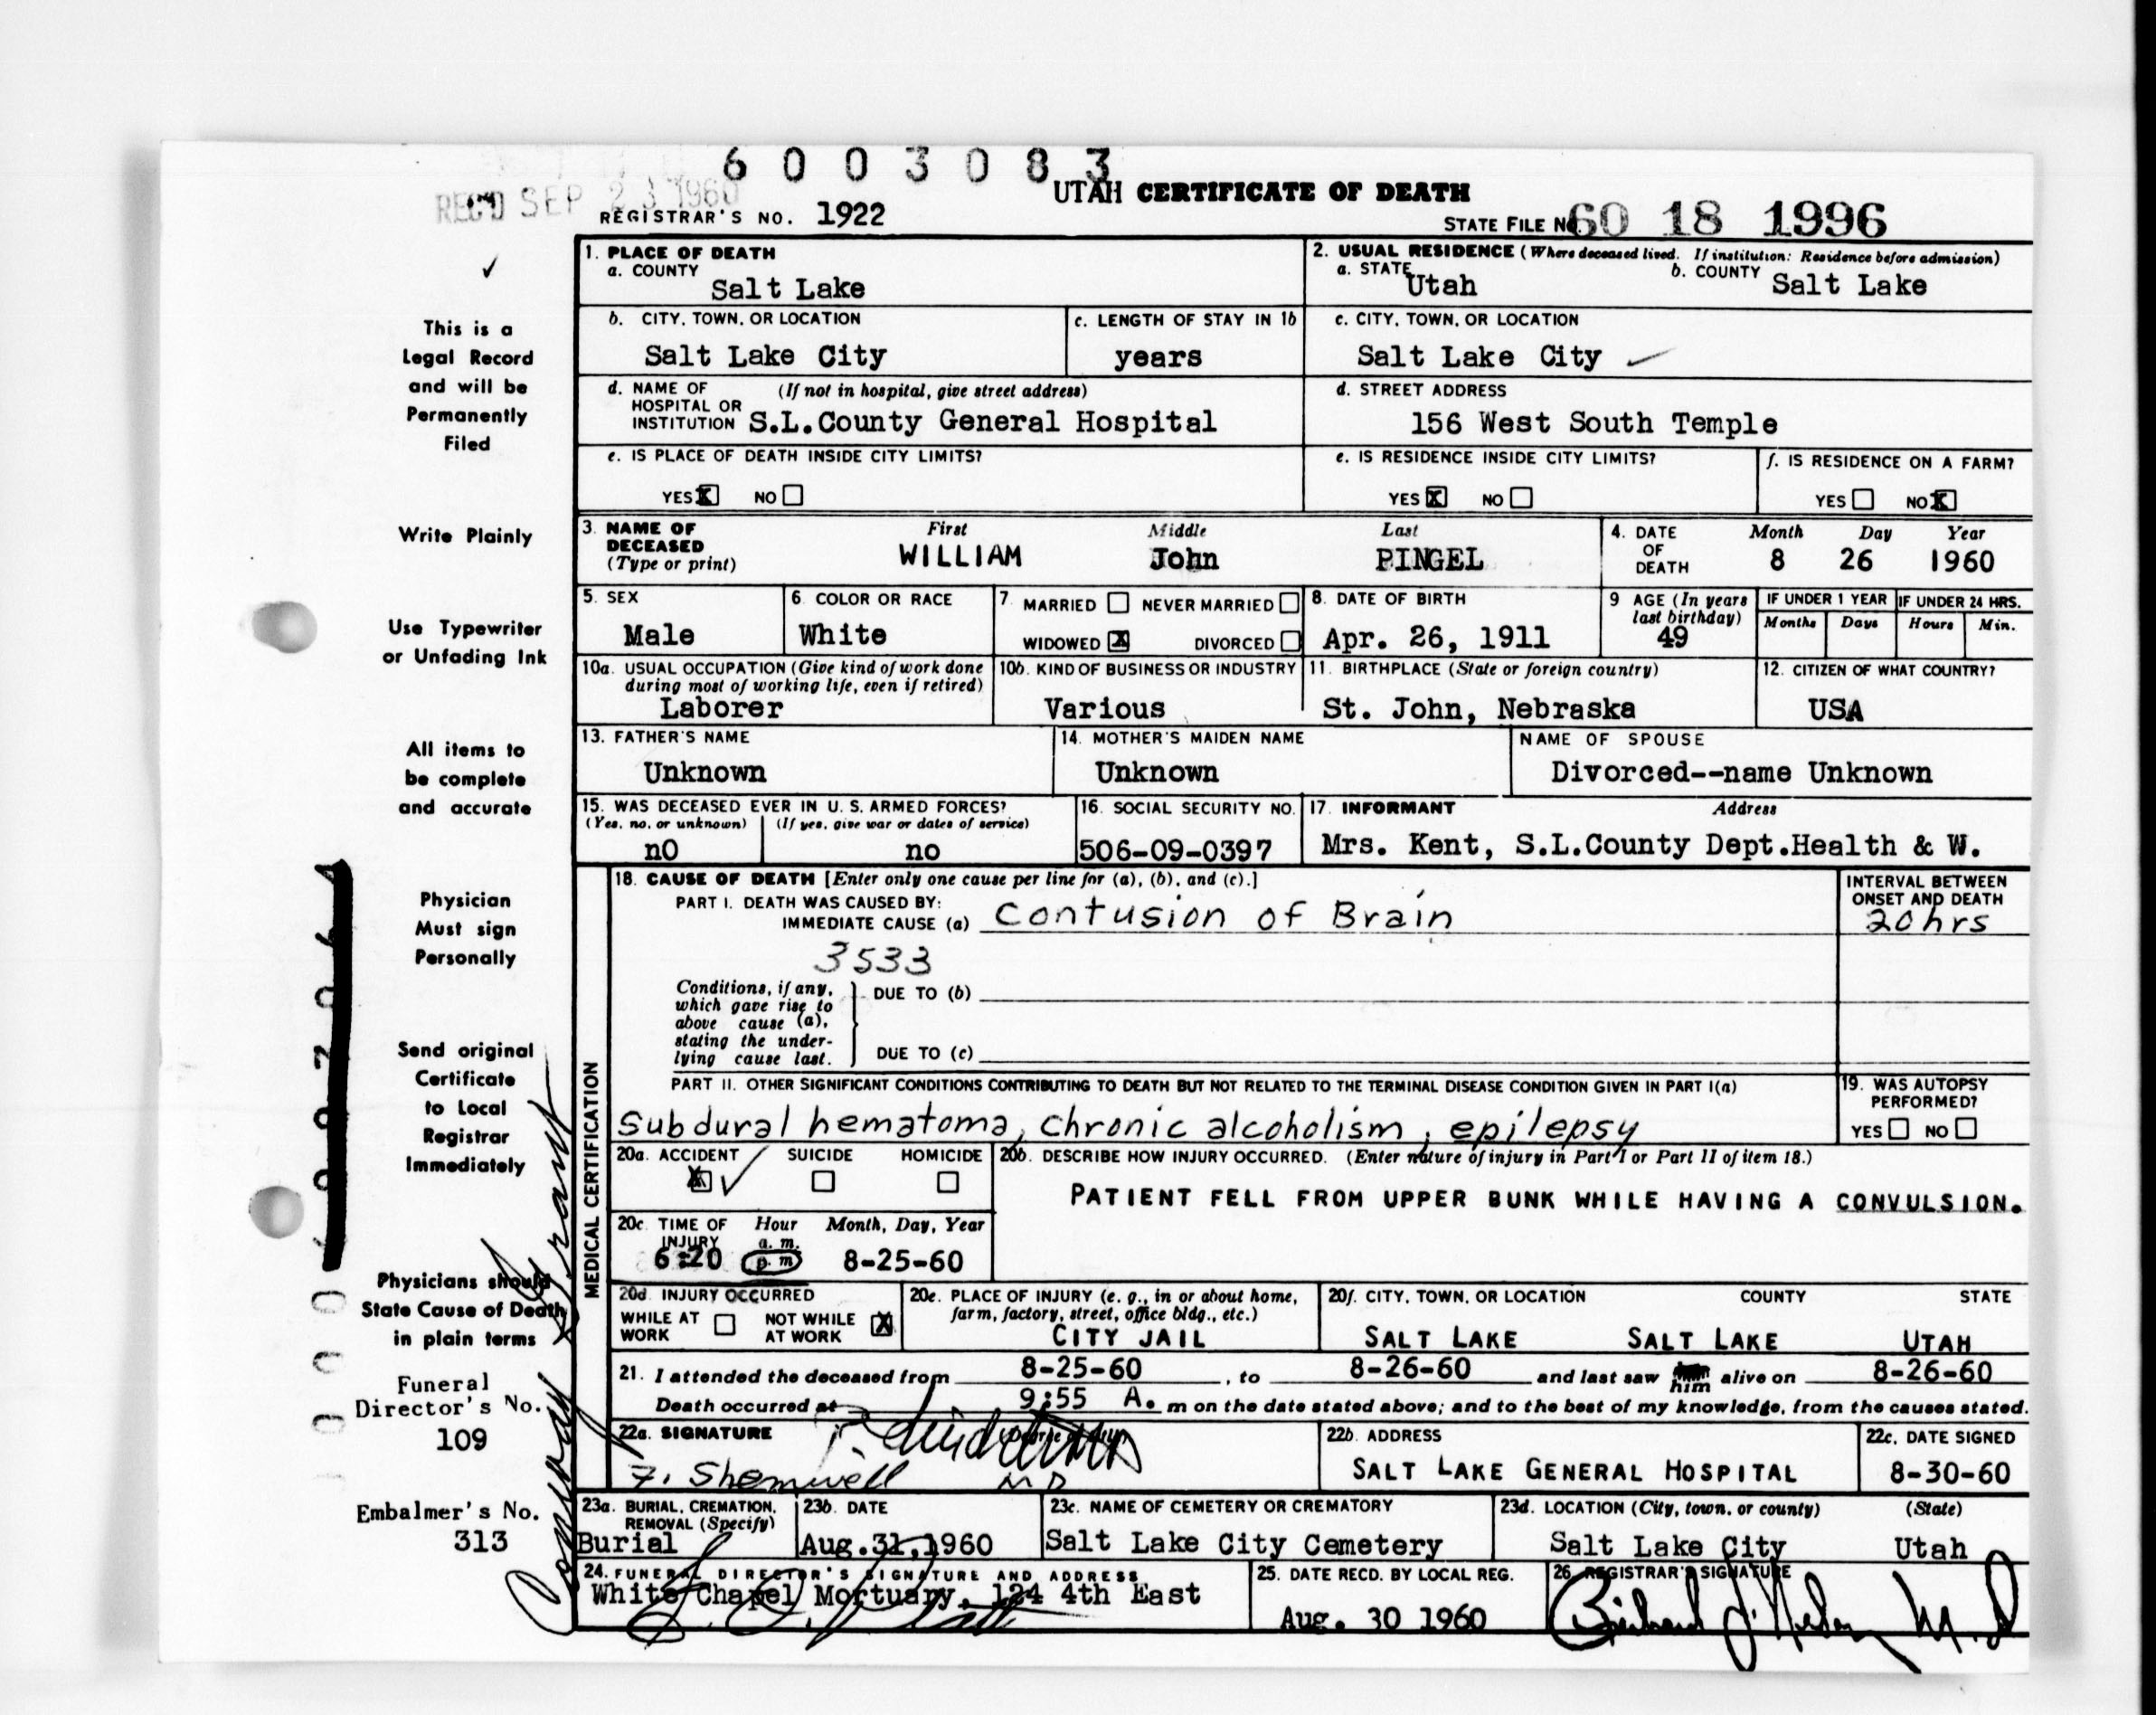 6 0 0 3 0 8 3
REC'D SEP 23 1960
UTAH CERTIFICATE OF DEATH
REGISTRAR'S NO. 1922
STATE FILE NO. 60 18 1996
This is a
Legal Record
and will be
Permanently
Filed
Write Plainly
Use Typewriter
or Unfading Ink
All items to
be complete
and accurate
Physician
Must sign
Personally
Send original
Certificate
to Local
Registrar
Immediately
Physicians should
State Cause of Death
in plain terms
Funeral
Director's No.
109
Embalmer's No.
313
1. PLACE OF DEATH
a. COUNTY
Salt Lake
2. USUAL RESIDENCE (Where deceased lived. If institution: Residence before admission)
a. STATE Utah
b. COUNTY Salt Lake
b. CITY, TOWN, OR LOCATION
Salt Lake City
c. LENGTH OF STAY IN 1b
years
c. CITY, TOWN, OR LOCATION
Salt Lake City
d. NAME OF (If not in hospital, give street address)
HOSPITAL OR
INSTITUTION S.L.County General Hospital
d. STREET ADDRESS
156 West South Temple
e. IS PLACE OF DEATH INSIDE CITY LIMITS?
YES X NO
e. IS RESIDENCE INSIDE CITY LIMITS?
YES X NO
f. IS RESIDENCE ON A FARM?
YES NO X
3. NAME OF
DECEASED
(Type or print)
First Middle Last
WILLIAM John PINGEL
4. DATE
OF
DEATH
Month Day Year
8 26 1960
5. SEX
Male
6. COLOR OR RACE
White
7. MARRIED NEVER MARRIED
WIDOWED X DIVORCED
8. DATE OF BIRTH
Apr. 26, 1911
9 AGE (In years
last birthday)
49
IF UNDER 1 YEAR
Months Days
IF UNDER 24 HRS.
Hours Min.
10a. USUAL OCCUPATION (Give kind of work done
during most of working life, even if retired)
Laborer
10b. KIND OF BUSINESS OR INDUSTRY
Various
11. BIRTHPLACE (State or foreign country)
St. John, Nebraska
12. CITIZEN OF WHAT COUNTRY?
USA
13. FATHER'S NAME
Unknown
14. MOTHER'S MAIDEN NAME
Unknown
NAME OF SPOUSE
Divorced--name Unknown
15. WAS DECEASED EVER IN U. S. ARMED FORCES?
(Yes, no, or unknown) (If yes, give war or dates of service)
nO no
16. SOCIAL SECURITY NO.
506-09-0397
17. INFORMANT Address
Mrs. Kent, S.L.County Dept.Health & W.
MEDICAL CERTIFICATION
18. CAUSE OF DEATH [Enter only one cause per line for (a), (b), and (c).]
PART I. DEATH WAS CAUSED BY:
IMMEDIATE CAUSE (a) Contusion of Brain
3533
INTERVAL BETWEEN
ONSET AND DEATH
20hrs
Conditions, if any,
which gave rise to
above cause (a),
stating the under-
lying cause last.
DUE TO (b)
DUE TO (c)
PART II. OTHER SIGNIFICANT CONDITIONS CONTRIBUTING TO DEATH BUT NOT RELATED TO THE TERMINAL DISEASE CONDITION GIVEN IN PART I(a)
Subdural hematoma, chronic alcoholism, epilepsy
19. WAS AUTOPSY
PERFORMED?
YES NO
20a. ACCIDENT SUICIDE HOMICIDE
X
20b. DESCRIBE HOW INJURY OCCURRED. (Enter nature of injury in Part I or Part II of item 18.)
PATIENT FELL FROM UPPER BUNK WHILE HAVING A CONVULSION.
20c. TIME OF Hour Month, Day, Year
INJURY a. m.
6:20 p. m 8-25-60
20d. INJURY OCCURRED
WHILE AT WORK NOT WHILE AT WORK X
20e. PLACE OF INJURY (e. g., in or about home,
farm, factory, street, office bldg., etc.)
CITY JAIL
20f. CITY, TOWN, OR LOCATION COUNTY STATE
SALT LAKE SALT LAKE UTAH
21. I attended the deceased from 8-25-60, to 8-26-60 and last saw him alive on 8-26-60
Death occurred at 9:55 A. m on the date stated above; and to the best of my knowledge, from the causes stated.
22a. SIGNATURE
F. Shemwell MD
22b. ADDRESS
SALT LAKE GENERAL HOSPITAL
22c. DATE SIGNED
8-30-60
23a. BURIAL, CREMATION,
REMOVAL (Specify)
Burial
23b. DATE
Aug.31,1960
23c. NAME OF CEMETERY OR CREMATORY
Salt Lake City Cemetery
23d. LOCATION (City, town, or county) (State)
Salt Lake City Utah
24. FUNERAL DIRECTOR'S SIGNATURE AND ADDRESS
White Chapel Mortuary, 124 4th East
25. DATE RECD. BY LOCAL REG.
Aug. 30 1960
26. REGISTRAR'S SIGNATURE